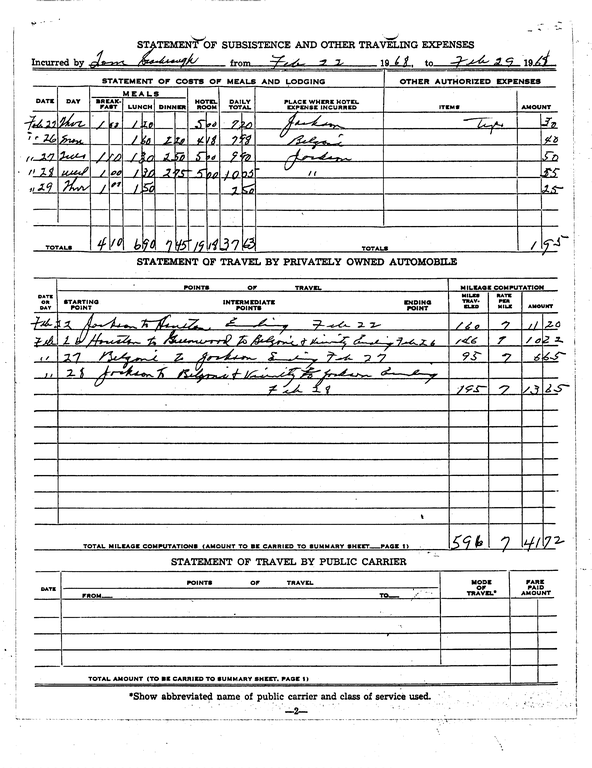 STATEMENT OF SUBSISTENCE AND OTHER TRAVELING EXPENSES
Incurred by Tom Scarbrough from Feb 22 1968, to Feb 29 1968
STATEMENT OF COSTS OF MEALS AND LODGING OTHER AUTHORIZED EXPENSES
MEALS
DATE DAY BREAK-FAST LUNCH DINNER HOTEL ROOM DAILY TOTAL PLACE WHERE HOTEL EXPENSE INCURRED ITEMS AMOUNT
Thur 1 20 5 00 Jackson Tips
" 26 Mon 1 60 2 20 4 18 7 98 Belzoni 40
" 27 Tues 1 10 1 30 2 50 5 00 9 90 Jackson 50
" 28 Wed 1 00 1 30 2 75 5 00 10 05 "
" 29 Thur 1 00 1 50 2 50 25
TOTALS 4 10 6 90 7 45 19 18 37 63 TOTALS 1 95
STATEMENT OF TRAVEL BY PRIVATELY OWNED AUTOMOBILE
POINTS OF TRAVEL MILEAGE COMPUTATION
DATE OR DAY STARTING POINT INTERMEDIATE POINTS ENDING POINT MILES TRAV-ELED RATE PER MILE AMOUNT
Feb 22 Jackson to Houston Ending Feb 22 160 7 11 20
Feb 26 Houston to Greenwood to Belzoni & Vicinity Ending Feb 26 146 7 10 22
" 27 Belzoni to Jackson Ending Feb 27 95 7 6 65
" 28 Jackson to Belzoni & Vicinity to Jackson Ending
Feb 28 195 7 13 65
TOTAL MILEAGE COMPUTATIONS (AMOUNT TO BE CARRIED TO SUMMARY SHEET__PAGE 1) 596 7 41 72
STATEMENT OF TRAVEL BY PUBLIC CARRIER
DATE POINTS OF TRAVEL MODE OF TRAVEL* FARE PAID AMOUNT
FROM__ TO__
TOTAL AMOUNT (TO BE CARRIED TO SUMMARY SHEET. PAGE 1)
*Show abbreviated name of public carrier and class of service used.
—2—